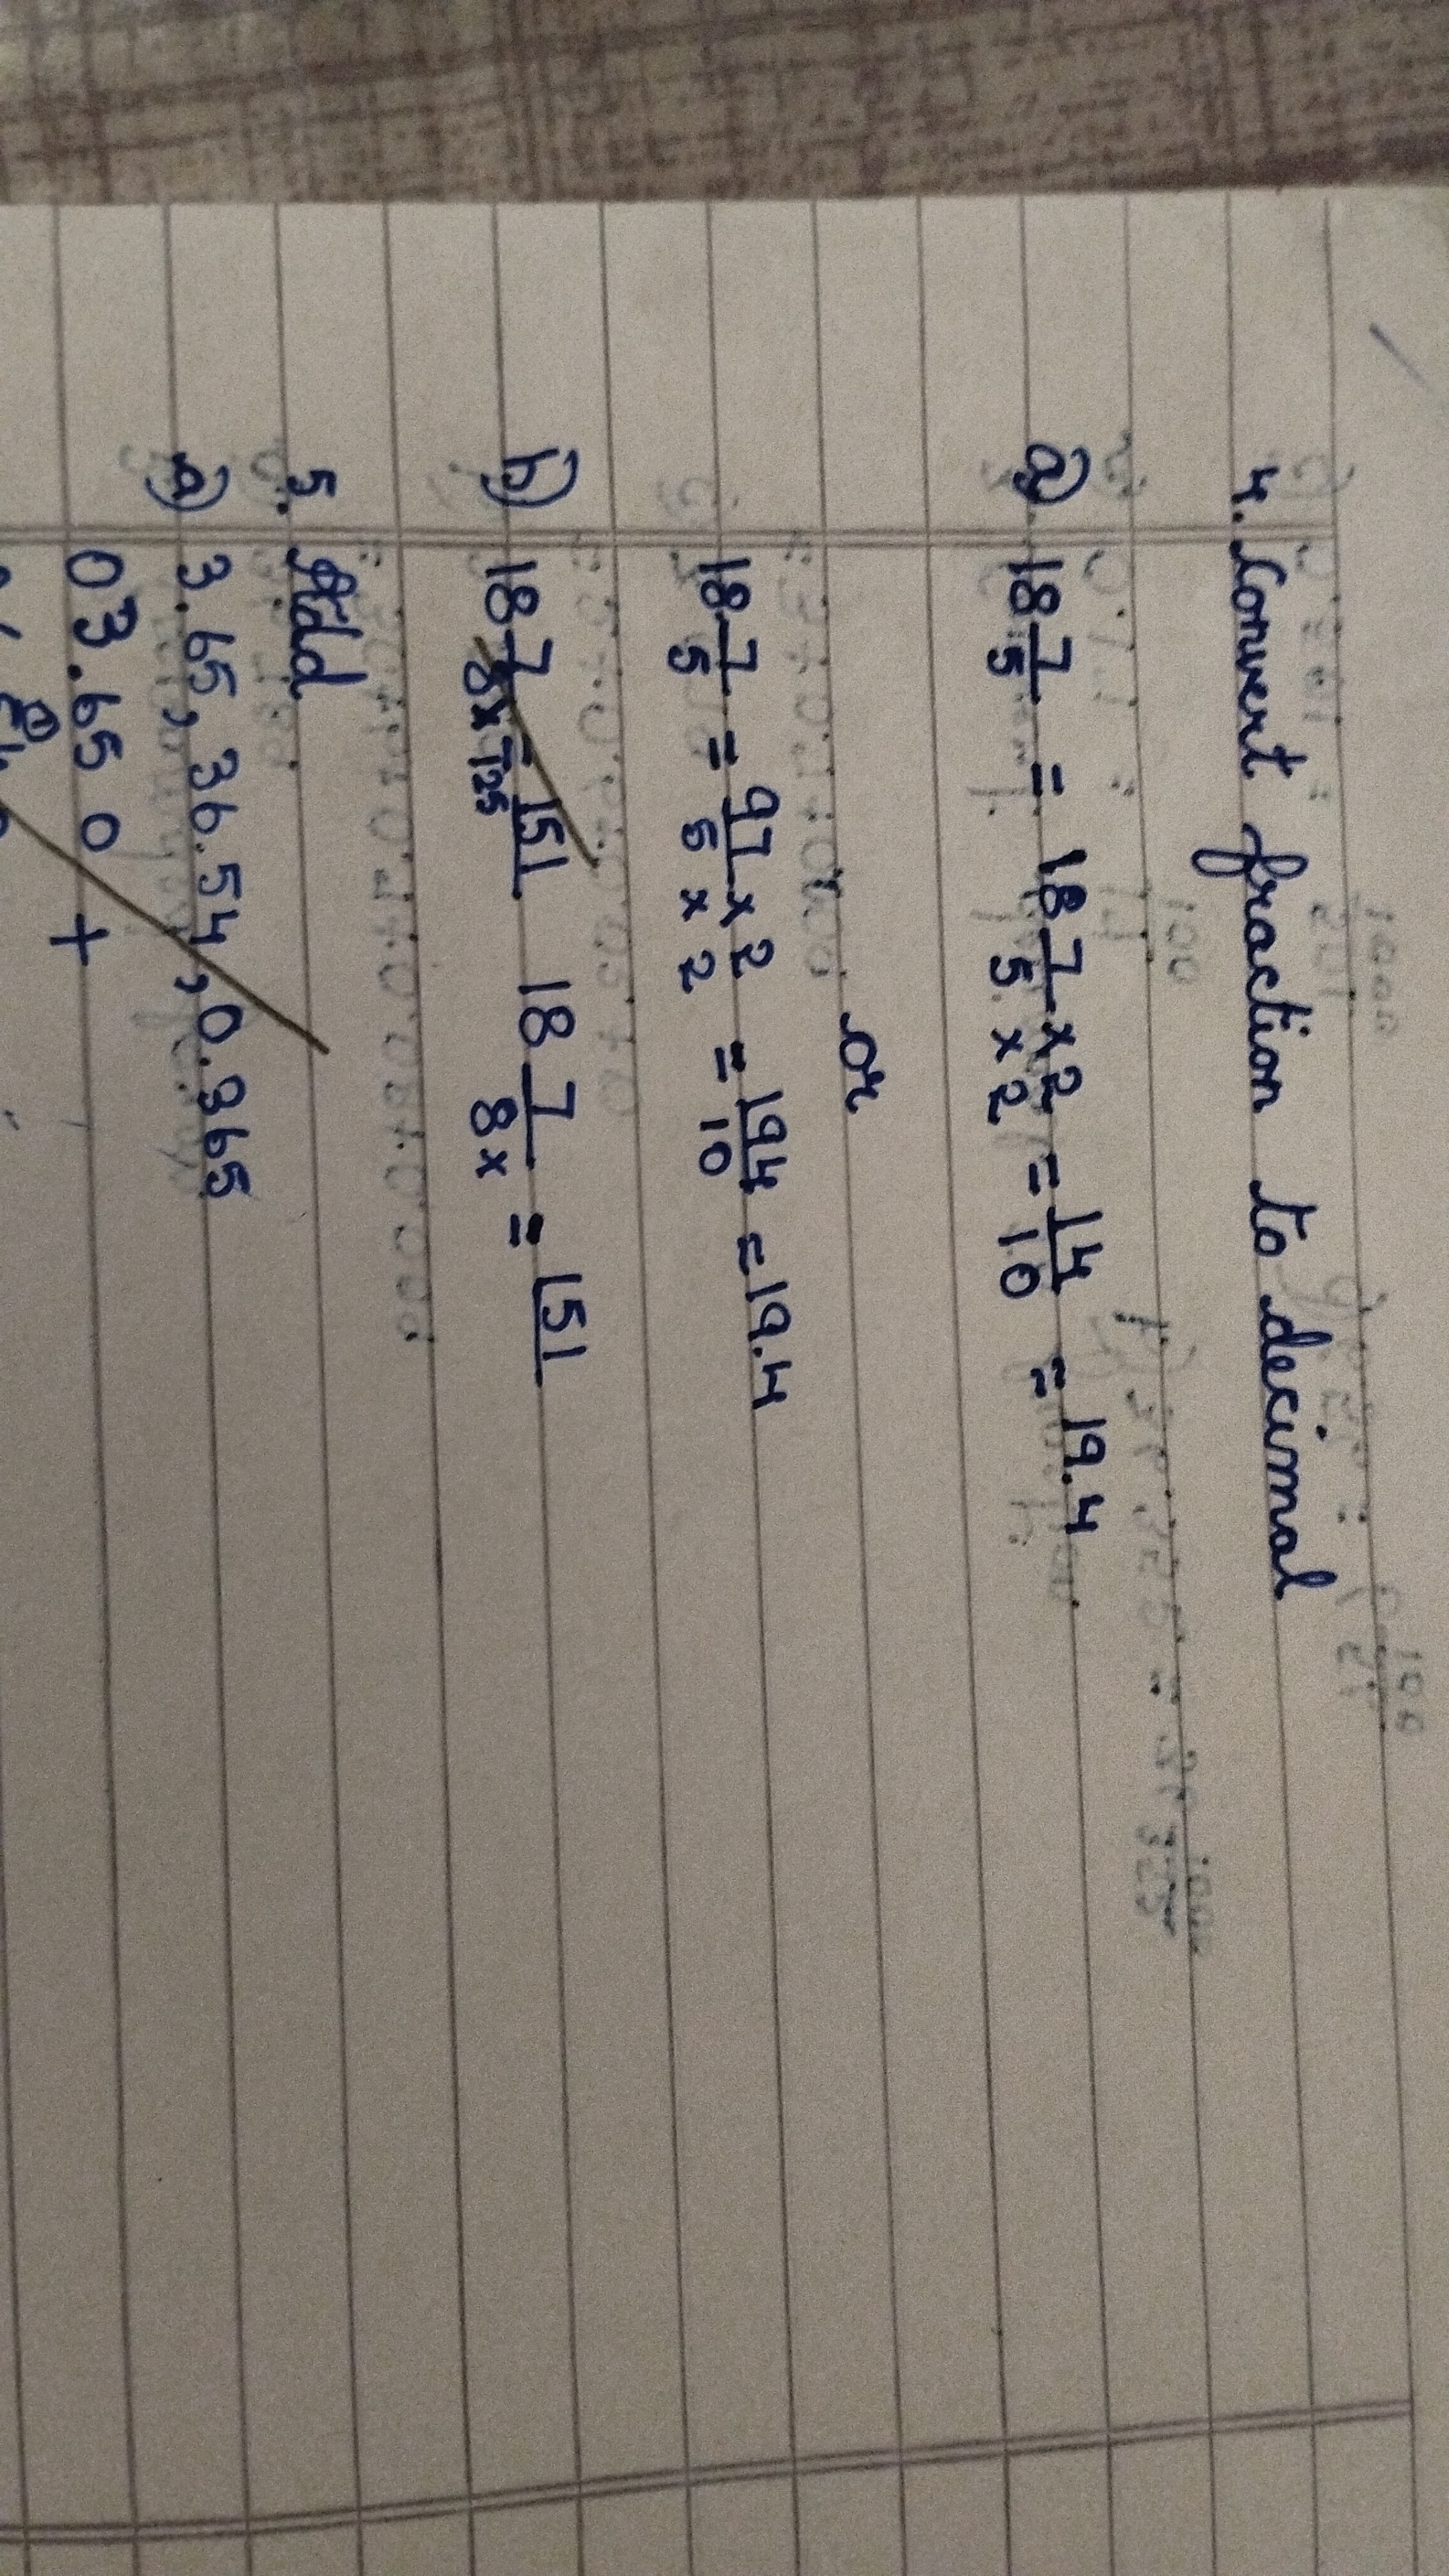 4. Convert fraction to decimal
a) 18 7/5 = 18 7/5 × 2/2 = 14/10 = 19.4
or
18 7/5 = 97/5 × 2/2 = 194/10 = 19.4
b) 18 7/8 × 125 = 151 18 7/8 × = 151
5. Add
a) 3.65, 36.54, 0.365
03.650 +